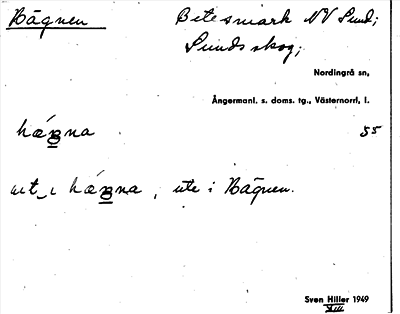 Bägnen
Betesmark NV Sund;
Sunds skog;
Nordingrå sn,
Ångermanl. s. doms. tg., Västernorrl. l.
55
ute i Bägnen.
Sven Hiller 1949
XIII